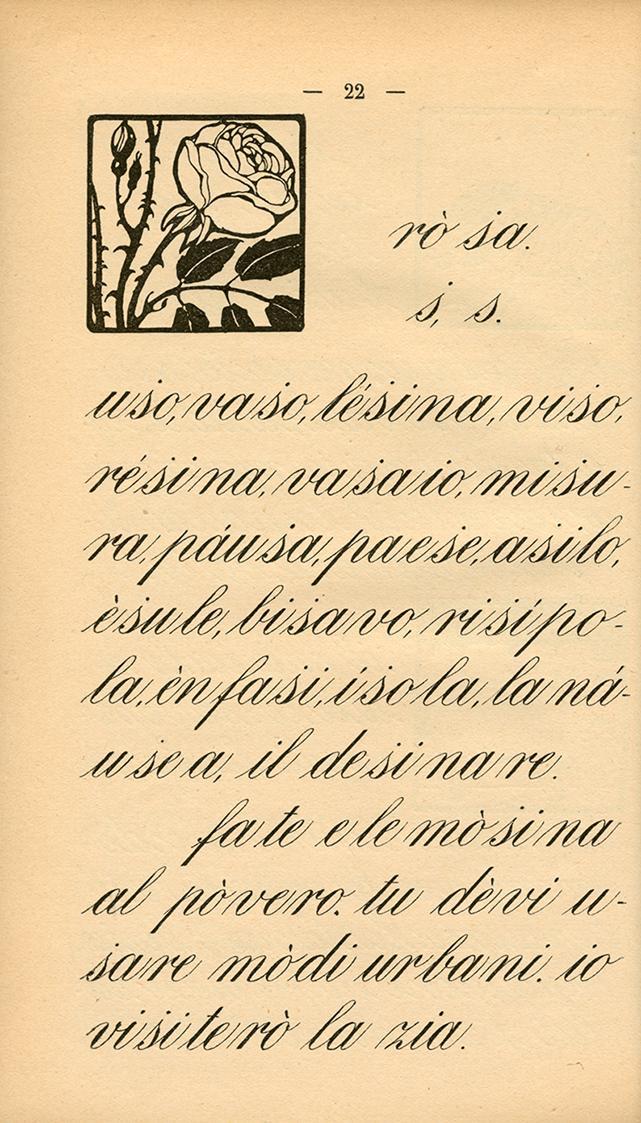 — 22 —
rò ṡa.
ṡ, ṡ.
uṡo, vaṡo, léṡina, viṡo,
réṡina, vaṡaio, miṡu-
ra, páuṡa, paeṡe, aṡilo,
èṡule, biṡavo, riṡípo-
la, ènfaṡi, íṡola, la ná-
uṡea, il deṡinare.
fate elemòṡina
al pòvero. tu dèvi u-
ṡare mòdi urbani. io
viṡiterò la zia.